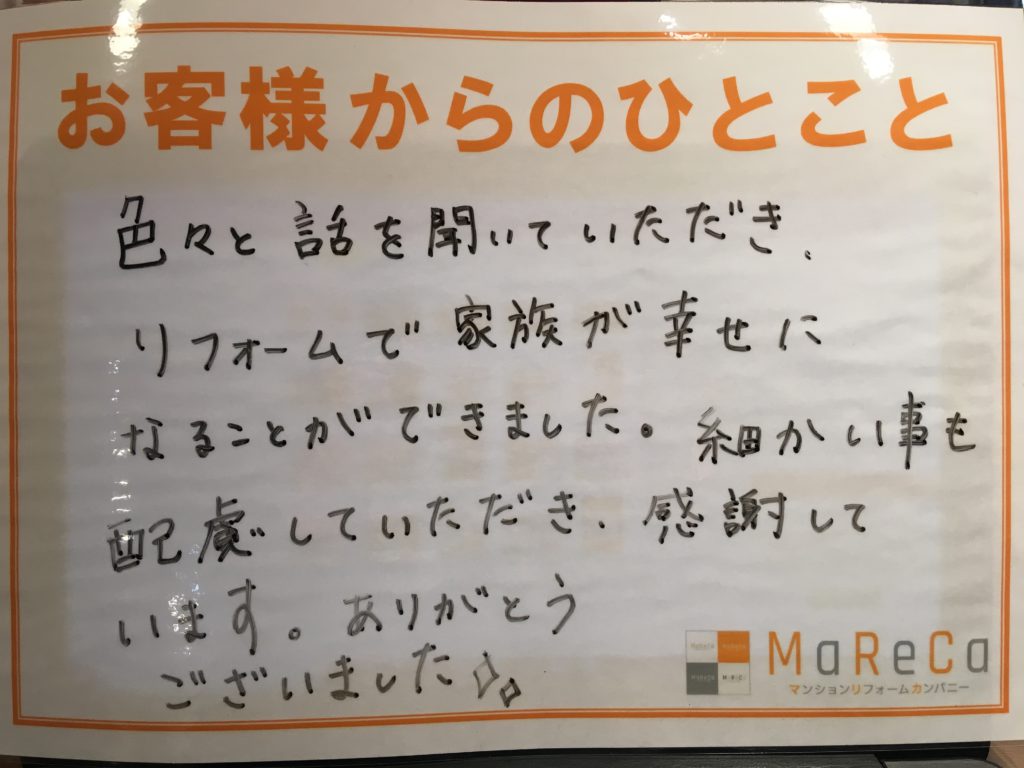 お客様からのひとこと
色々と話を聞いていただき、
リフォームで家族が幸せに
なることができました。細かい事も
配慮していただき、感謝して
います。ありがとう
ございました
MaReCa
マンションリフォームカンパニー